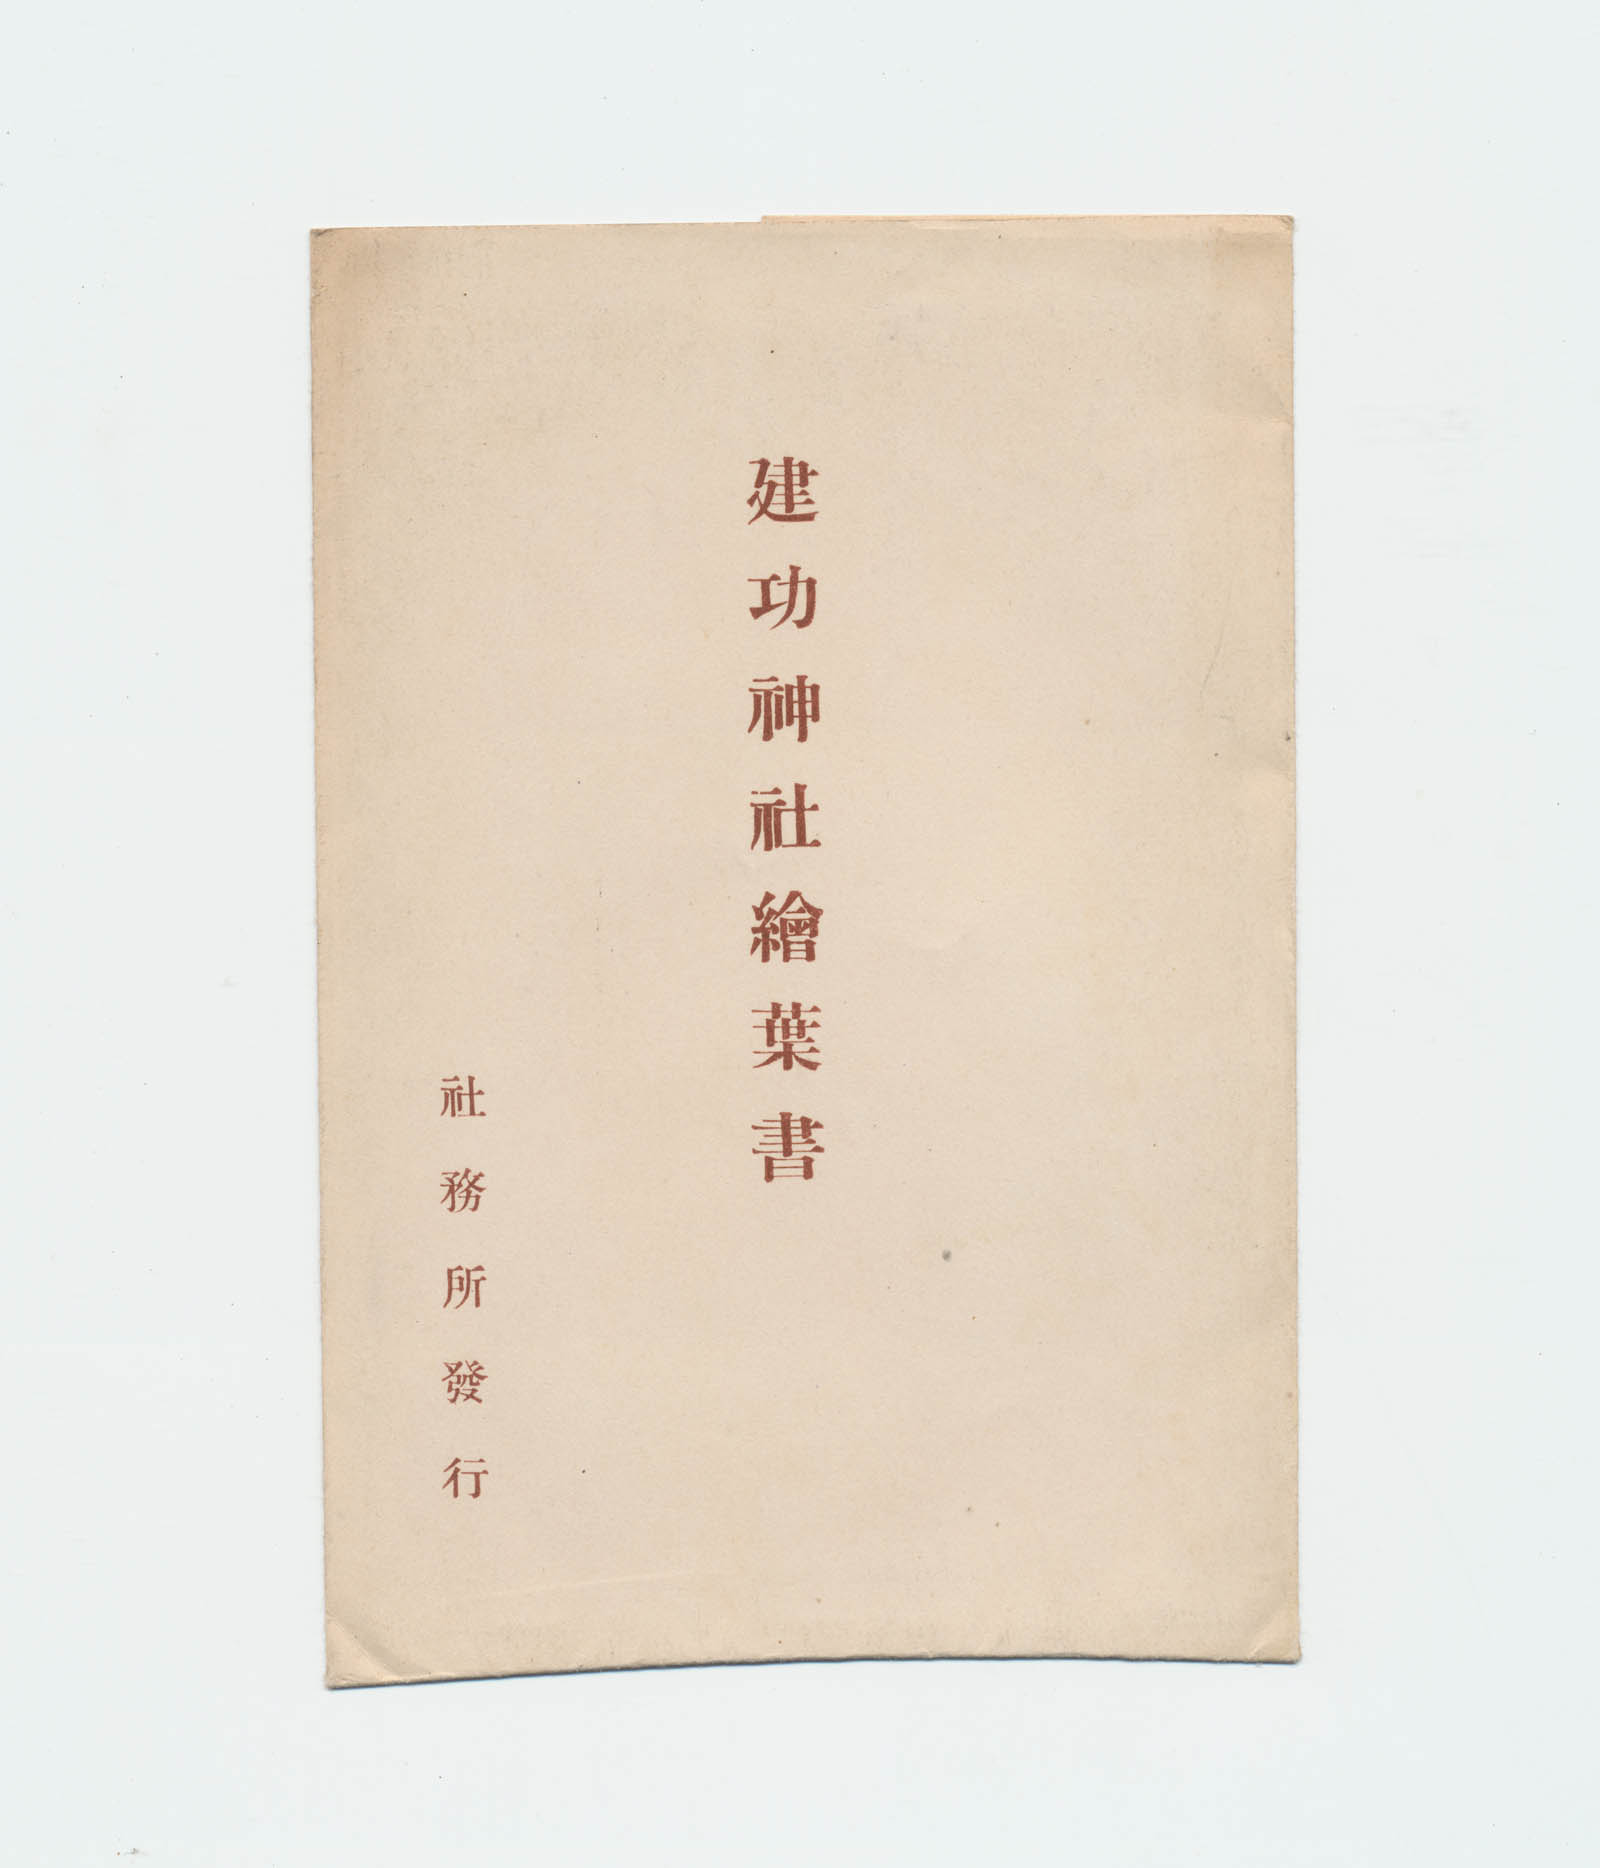 建功神社繪葉書
社務所發行